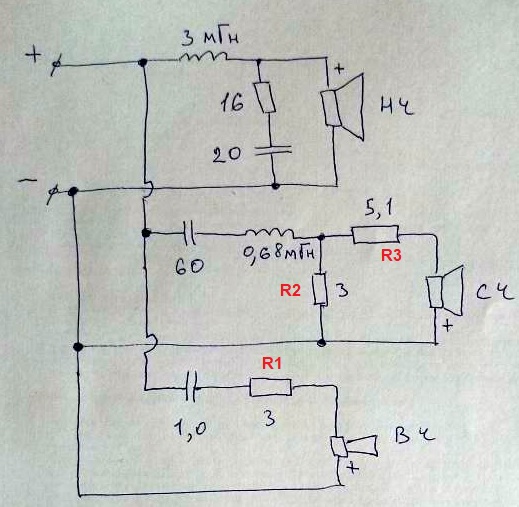 3 мГн
+
+
16
НЧ
20
−
5,1
R3
60
0,68мГн
R2
3
СЧ
+
R1
1,0
3
ВЧ
+